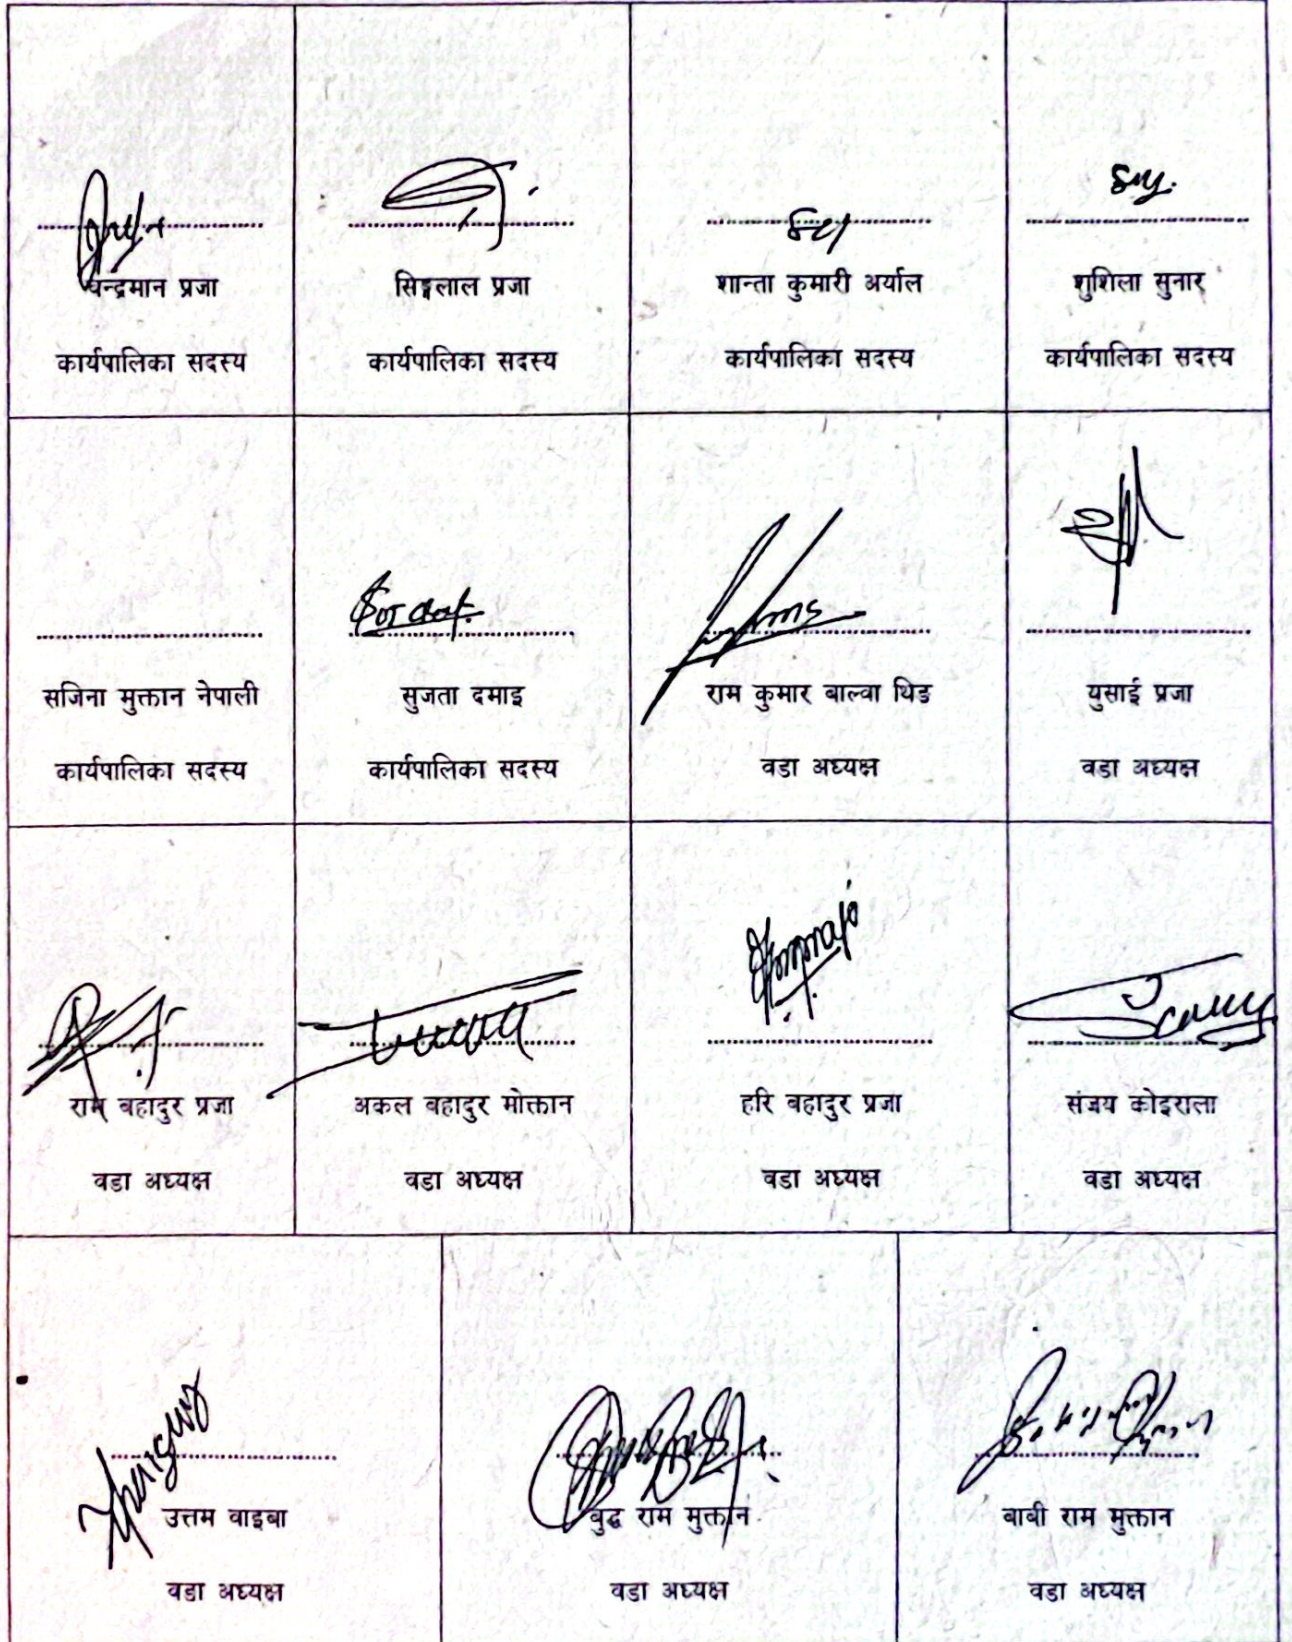 चन्द्रमान प्रजा
कार्यपालिका सदस्य
सिङ्गलाल प्रजा
कार्यपालिका सदस्य
शान्ता कुमारी अर्याल
कार्यपालिका सदस्य
शुशिला सुनार
कार्यपालिका सदस्य
सजिना मुक्तान नेपाली
कार्यपालिका सदस्य
सुजता दमाइ
कार्यपालिका सदस्य
राम कुमार बाल्वा थिङ
वडा अध्यक्ष
युसाई प्रजा
वडा अध्यक्ष
राम बहादुर प्रजा
वडा अध्यक्ष
अकल बहादुर मोक्तान
वडा अध्यक्ष
हरि बहादुर प्रजा
वडा अध्यक्ष
संजय कोइराला
वडा अध्यक्ष
उत्तम वाइबा
वडा अध्यक्ष
बुद्ध राम मुक्तान
वडा अध्यक्ष
बाबी राम मुक्तान
वडा अध्यक्ष